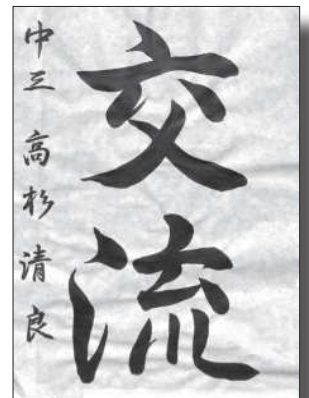 交流
中三 高杉清良